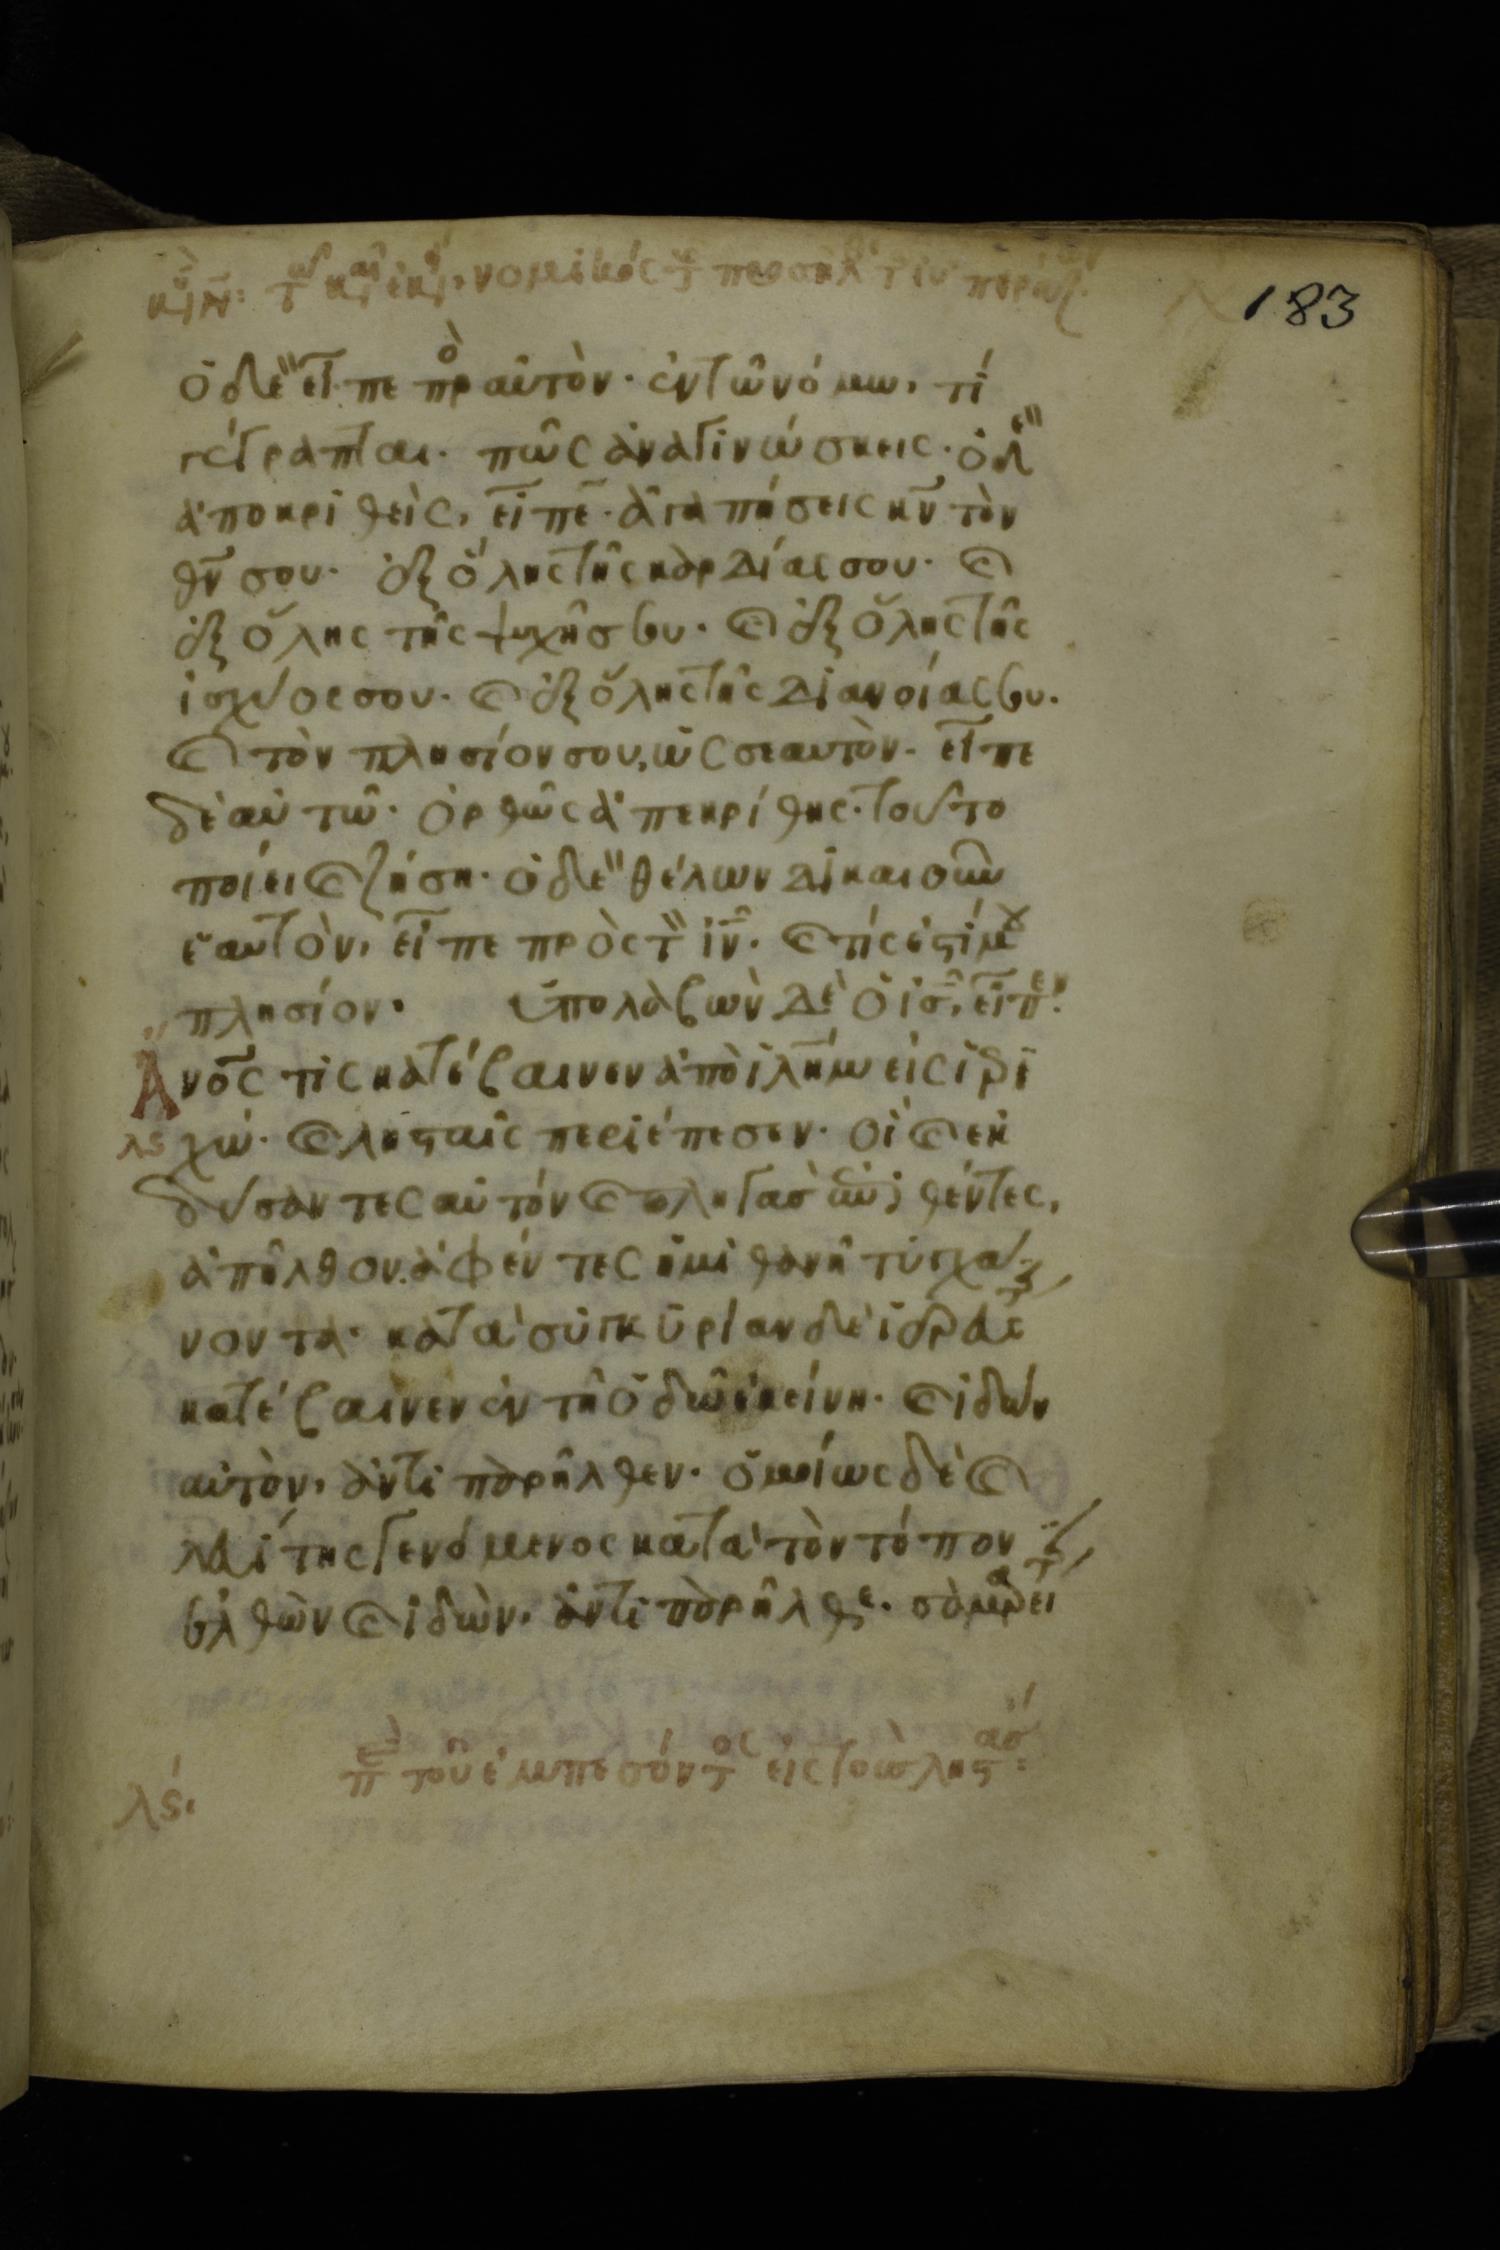 183
ὁ δὲ εἶπε πρ αὐτὸν· ἐν τῶ νόμω, τί
γέγραπται· πῶς ἀναγινώσκεις· ὁ δὲ
ἀποκριθεὶς, εἶπε· ἀγαπήσεις κν τὸν
θν σου· ἐξ ὅλης τῆς καρδίας σου· καὶ
ἐξ ὅλης τῆς ψυχῆς σου· καὶ ἐξ ὅλης τῆς
ἰσχύος σου· καὶ ἐξ ὅλης τῆς διανοίας σου·
καὶ τὸν πλησίον σου, ὡς σεαυτὸν· εἶπε
δὲ αὐτῶ· ὀρθῶς ἀπεκρίθης· τοῦτο
ποίει καὶ ζήση· ὁ δὲ θέλων δικαιοῦν
ἑαυτὸν, εἶπε πρὸς τ ιν· καὶ τίς ἐστί μου
πλησίον· ὑπολαβὼν δὲ ὁ ις, εἶπεν·
ανος τὶς κατέβαινεν ἀπὸ ιλημ εἰς ἱερι
λς χώ· καὶ λησταῖς περιέπεσεν· οἳ καὶ ἐκ
δύσαντες αὐτόν καὶ πληγὰς ἐπιθέντες,
ἀπῆλθον· ἀφέντες ἡμιθανῆ τυγχά
νοντα· κατὰ συγκυρίαν δὲ ἱερεύς τις
κατέβαινεν ἐν τῆ ὁδῶ ἐκείνη· καὶ ἰδών
αὐτὸν, ἀντιπαρῆλθεν· ὁμοίως δὲ καὶ
λευίτης γενόμενος κατὰ τὸν τόπον
ἐλθὼν καὶ ἰδὼν, ἀντιπαρῆλθε· σαμαρεί
λς· π τοῦ ἐμπεσόντος εἰς τοὺς ληστάς: